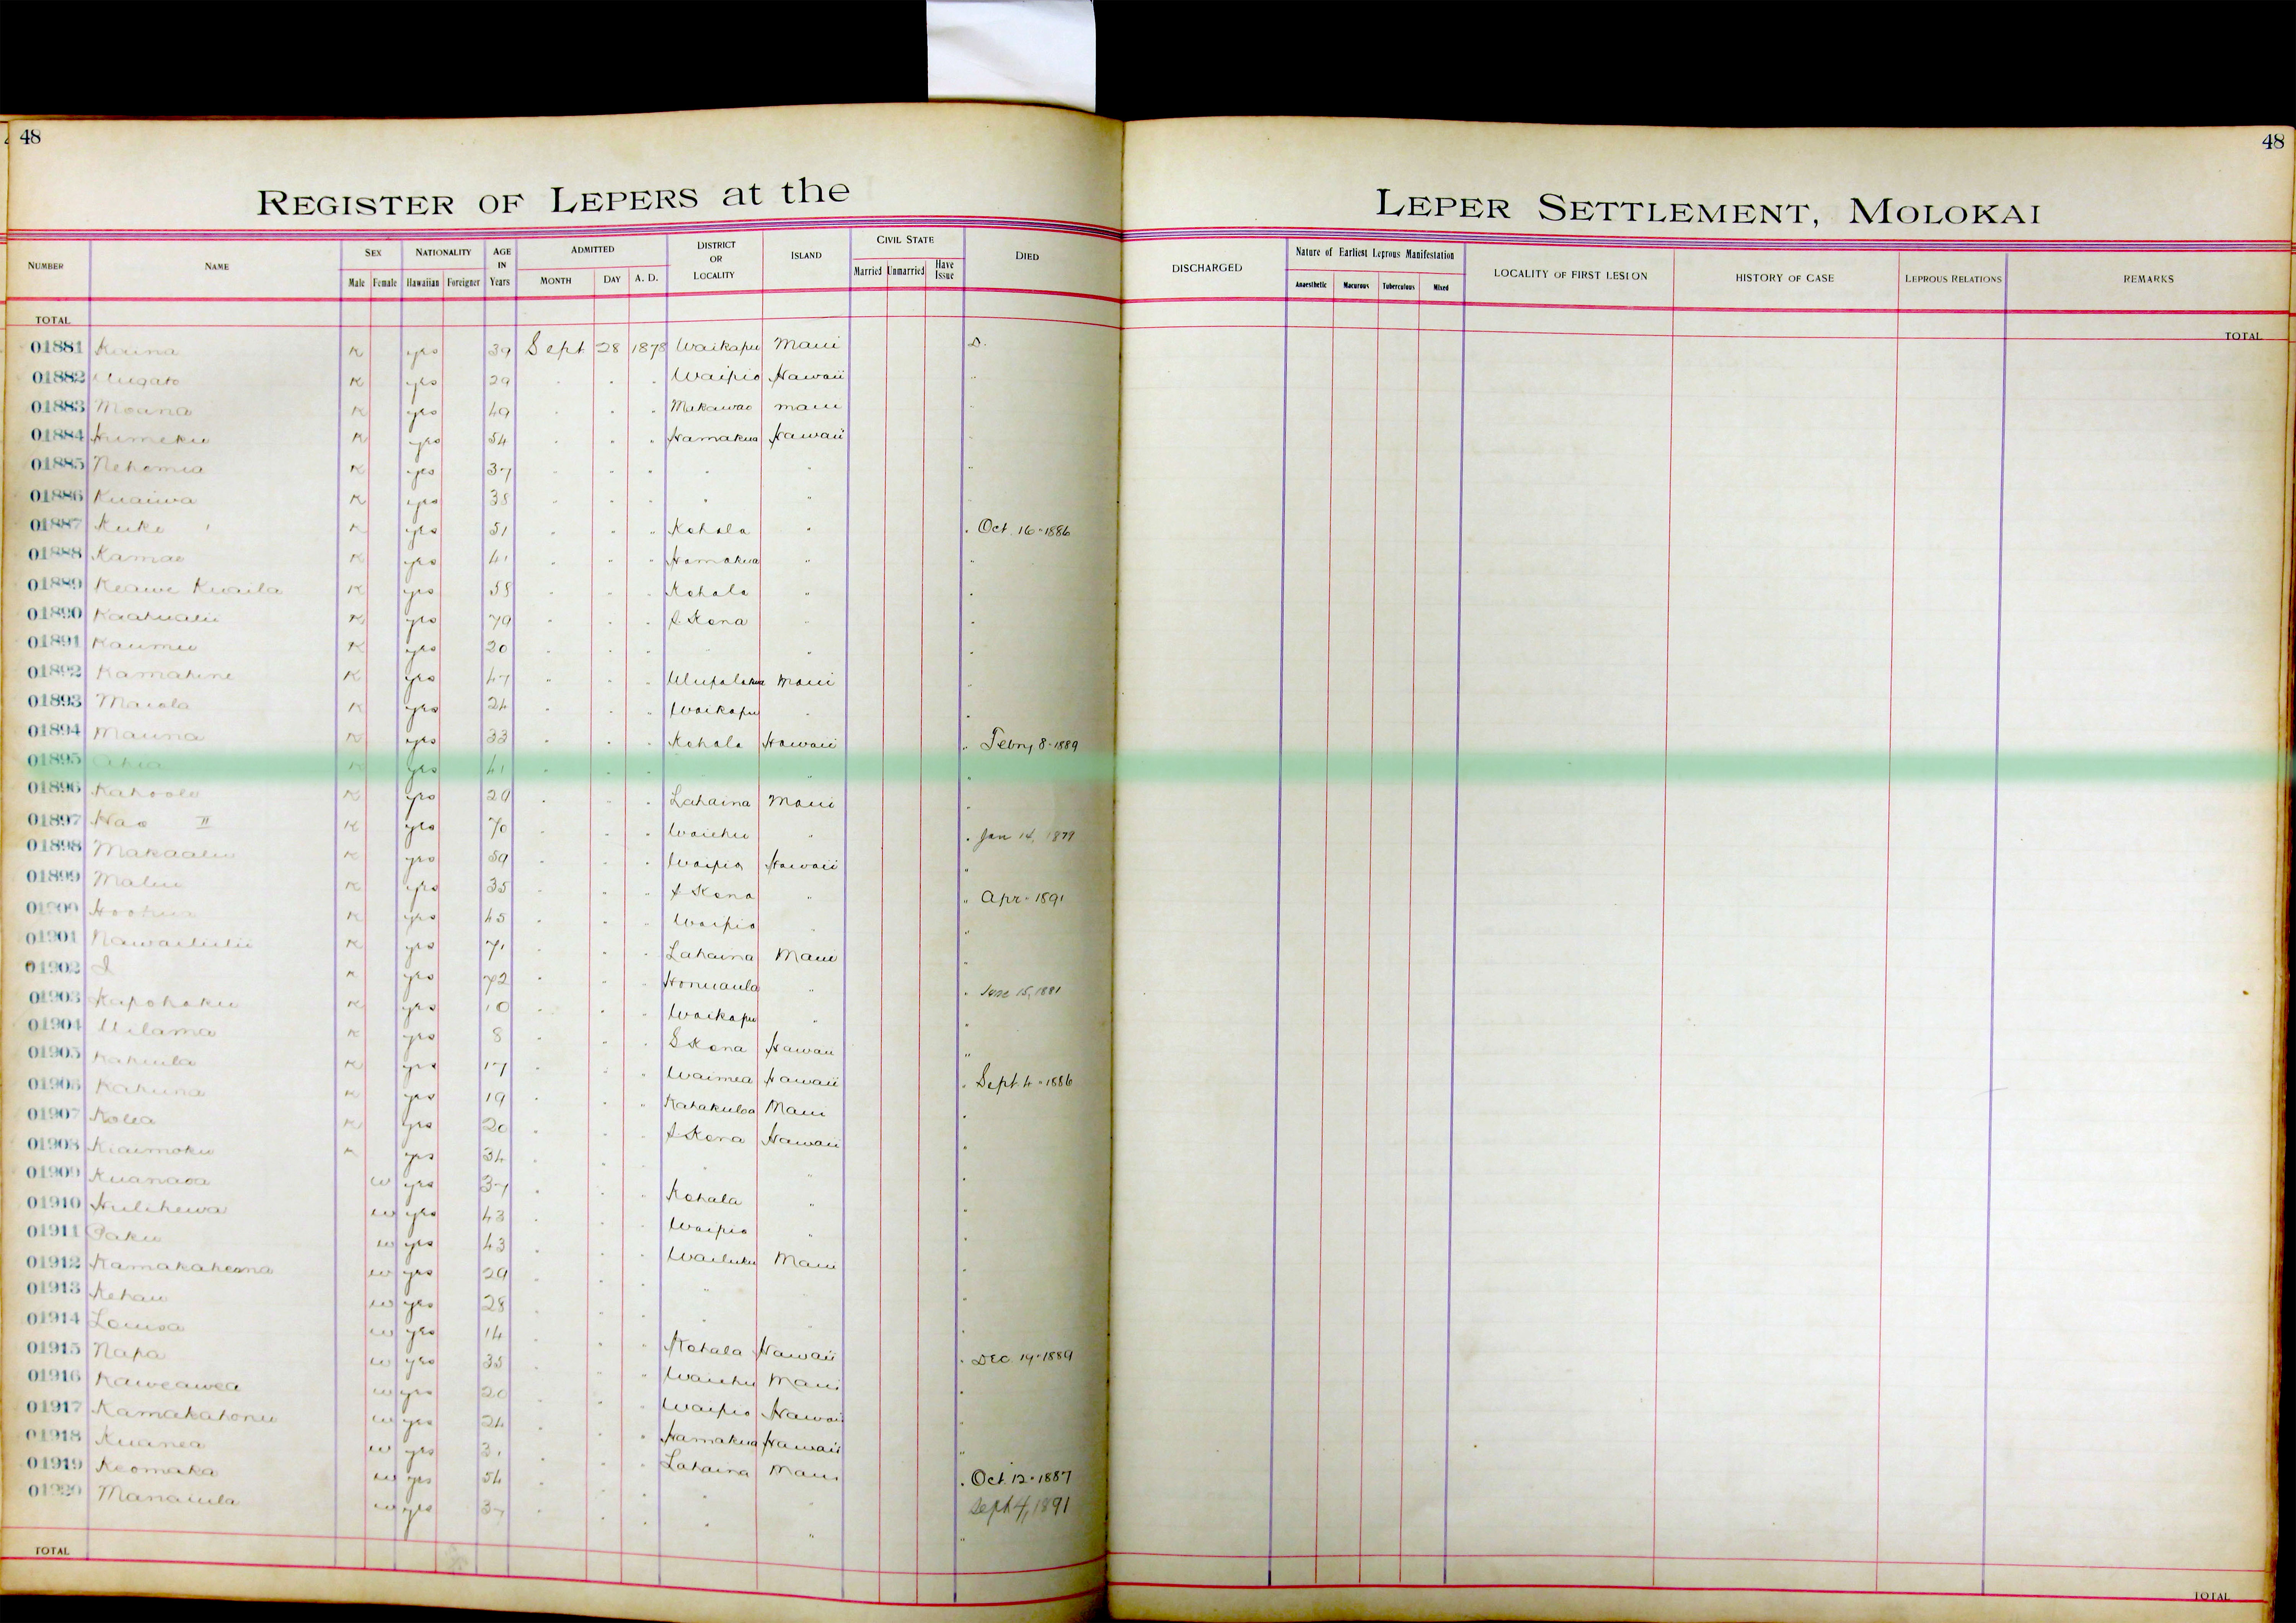 48
48
REGISTER OF LEPERS at the
LEPER SETTLEMENT, MOLOKAI
NUMBER NAME SEX NATIONALITY AGE IN Years ADMITTED DISTRICT OR LOCALITY ISLAND CIVIL STATE DIED
Male Female Hawaiian Foreigner MONTH DAY A. D. Married Unmarried Have Issue
DISCHARGED Nature of Earliest Leprous Manifestation LOCALITY OF FIRST LESION HISTORY OF CASE LEPROUS RELATIONS REMARKS
Anaesthetic Macurous Tuberculous Mixed
TOTAL
TOTAL
01881 K yes 39 Sept 28 1878 Waikapu Maui D.
01882 K yes 29 Waipio Hawaii
01883 Moana K yes 49 Makawao Maui
01884 Humeku K yes 54 Hamakua Hawaii
01885 Nehemia K yes 37 " "
01886 Kuaiwa K yes 38 " "
01887 Kuke K yes 51 Kohala " Oct. 16 - 1886
01888 Kamao K yes 41 Hamakua "
01889 Keawe Kuaila K yes 58 Kohala "
01890 K yes 79 Kona "
01891 Kaumu K yes 20 " "
01892 Kamahine K yes 47 Ulupalakua Maui
01893 Maiola K yes 24 Waikapu "
01894 Mauna K yes 33 Kohala Hawaii " Febry 8 - 1889
01895 Ahia K yes 41 "
01896 Kahoolo K yes 29 Lahaina Maui
01897 Hao II K yes 70 Waiehu " Jan 14, 1879
01898 Makaalu K yes 59 Waipio Hawaii
01899 Malu K yes 35 Kona " Apr - 1891
01900 Hoohua K yes 45 Waipio
01901 Nawailiilii K yes 71 Lahaina Maui
01902 I K yes 72 Honuaula " June 15, 1881
01903 Kapohaku K yes 10 Waikapu "
01904 Uilama K yes 8 S Kona Hawaii
01905 Kahiula K yes 17 Waimea Hawaii Sept. 4 - 1886
01906 Kahuna K yes 19 Kahakuloa Maui
01907 Kolea K yes 20 Kona Hawaii
01908 Kiaimoku K yes 34 " "
01909 Kuanaoa w yes 37 Kohala "
01910 Hulihewa w yes 43 Waipio "
01911 Paku w yes 43 Wailuku Maui
01912 w yes 29 "
01913 Kehau w yes 28 "
01914 Louisa w yes 14 Kohala Hawaii
01915 Napa w yes 35 Waiehu Maui Dec. 19 - 1889
01916 Kaweawea w yes 20 Waipio Hawaii
01917 Kamakahonu w yes 24 Hamakua Hawaii
01918 Kuanea w yes 31 Lahaina Maui
01919 Keomaka w yes 54 " " Oct 12 - 1887
01920 Manaiula w yes 37 " " Sept 4, 1891
TOTAL
TOTAL